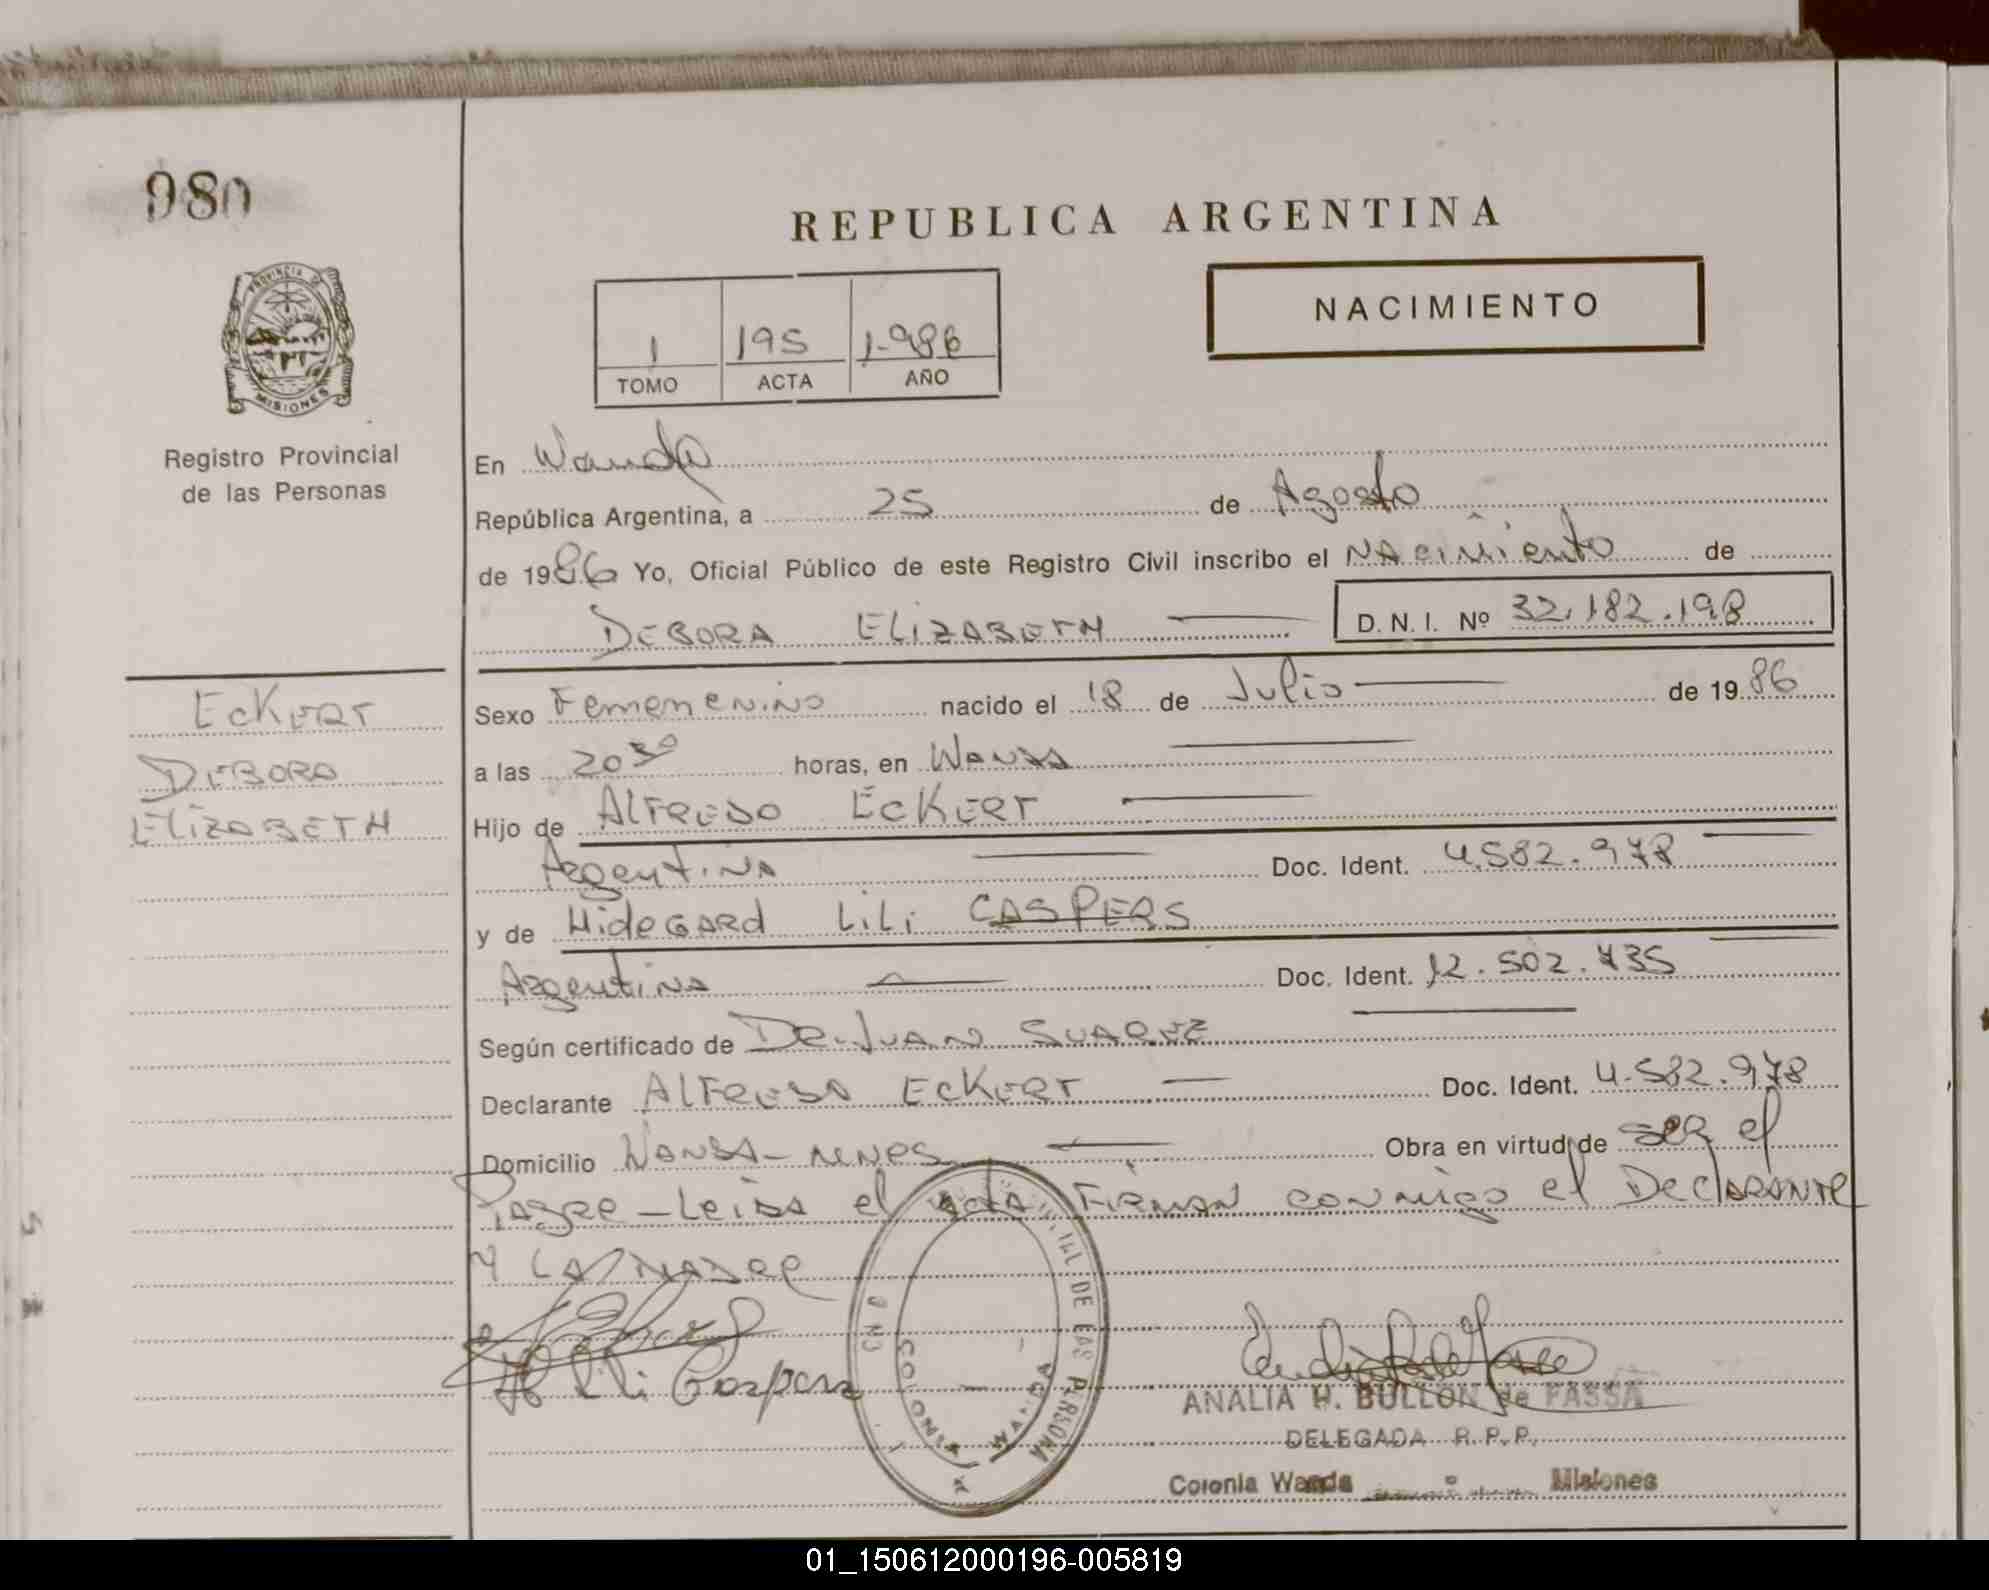 980
REPUBLICA ARGENTINA
PROVINCIA DE
MISIONES
Registro Provincial
de las Personas
1 195 1.986
TOMO ACTA AÑO
NACIMIENTO
En Wanda
República Argentina, a 25 de Agosto
de 1986 Yo, Oficial Público de este Registro Civil inscribo el NAcimiento de
DEBORA ELIZABETH D. N. I. Nº 32.182.198
ECKERT
DEBORA
ELIZABETH
Sexo Femenenino nacido el 18 de Julio de 1986
a las 20 30 horas, en WANDA
Hijo de ALFREDO ECKERT
ArgentiNA Doc. Ident. 4.582.978
y de HideGARd LiLi CASPERS
ArgentiNA Doc. Ident. 12.502.735
Según certificado de DR. JUAN SUAREZ
Declarante ALFREDO ECKERT Doc. Ident. 4.582.978
Domicilio WANDA - MNES Obra en virtud de SER el
PADRE - LeidA el ActA FIRMAN conmigo el DeclARANTE
Y LA MADRE
H Lili Caspers
DE LAS PERSONA
COLONIA WANDA
ANALIA H. BULLON de FASSA
DELEGADA R. P. P.
Colonia Wanda Misiones
01_150612000196-005819